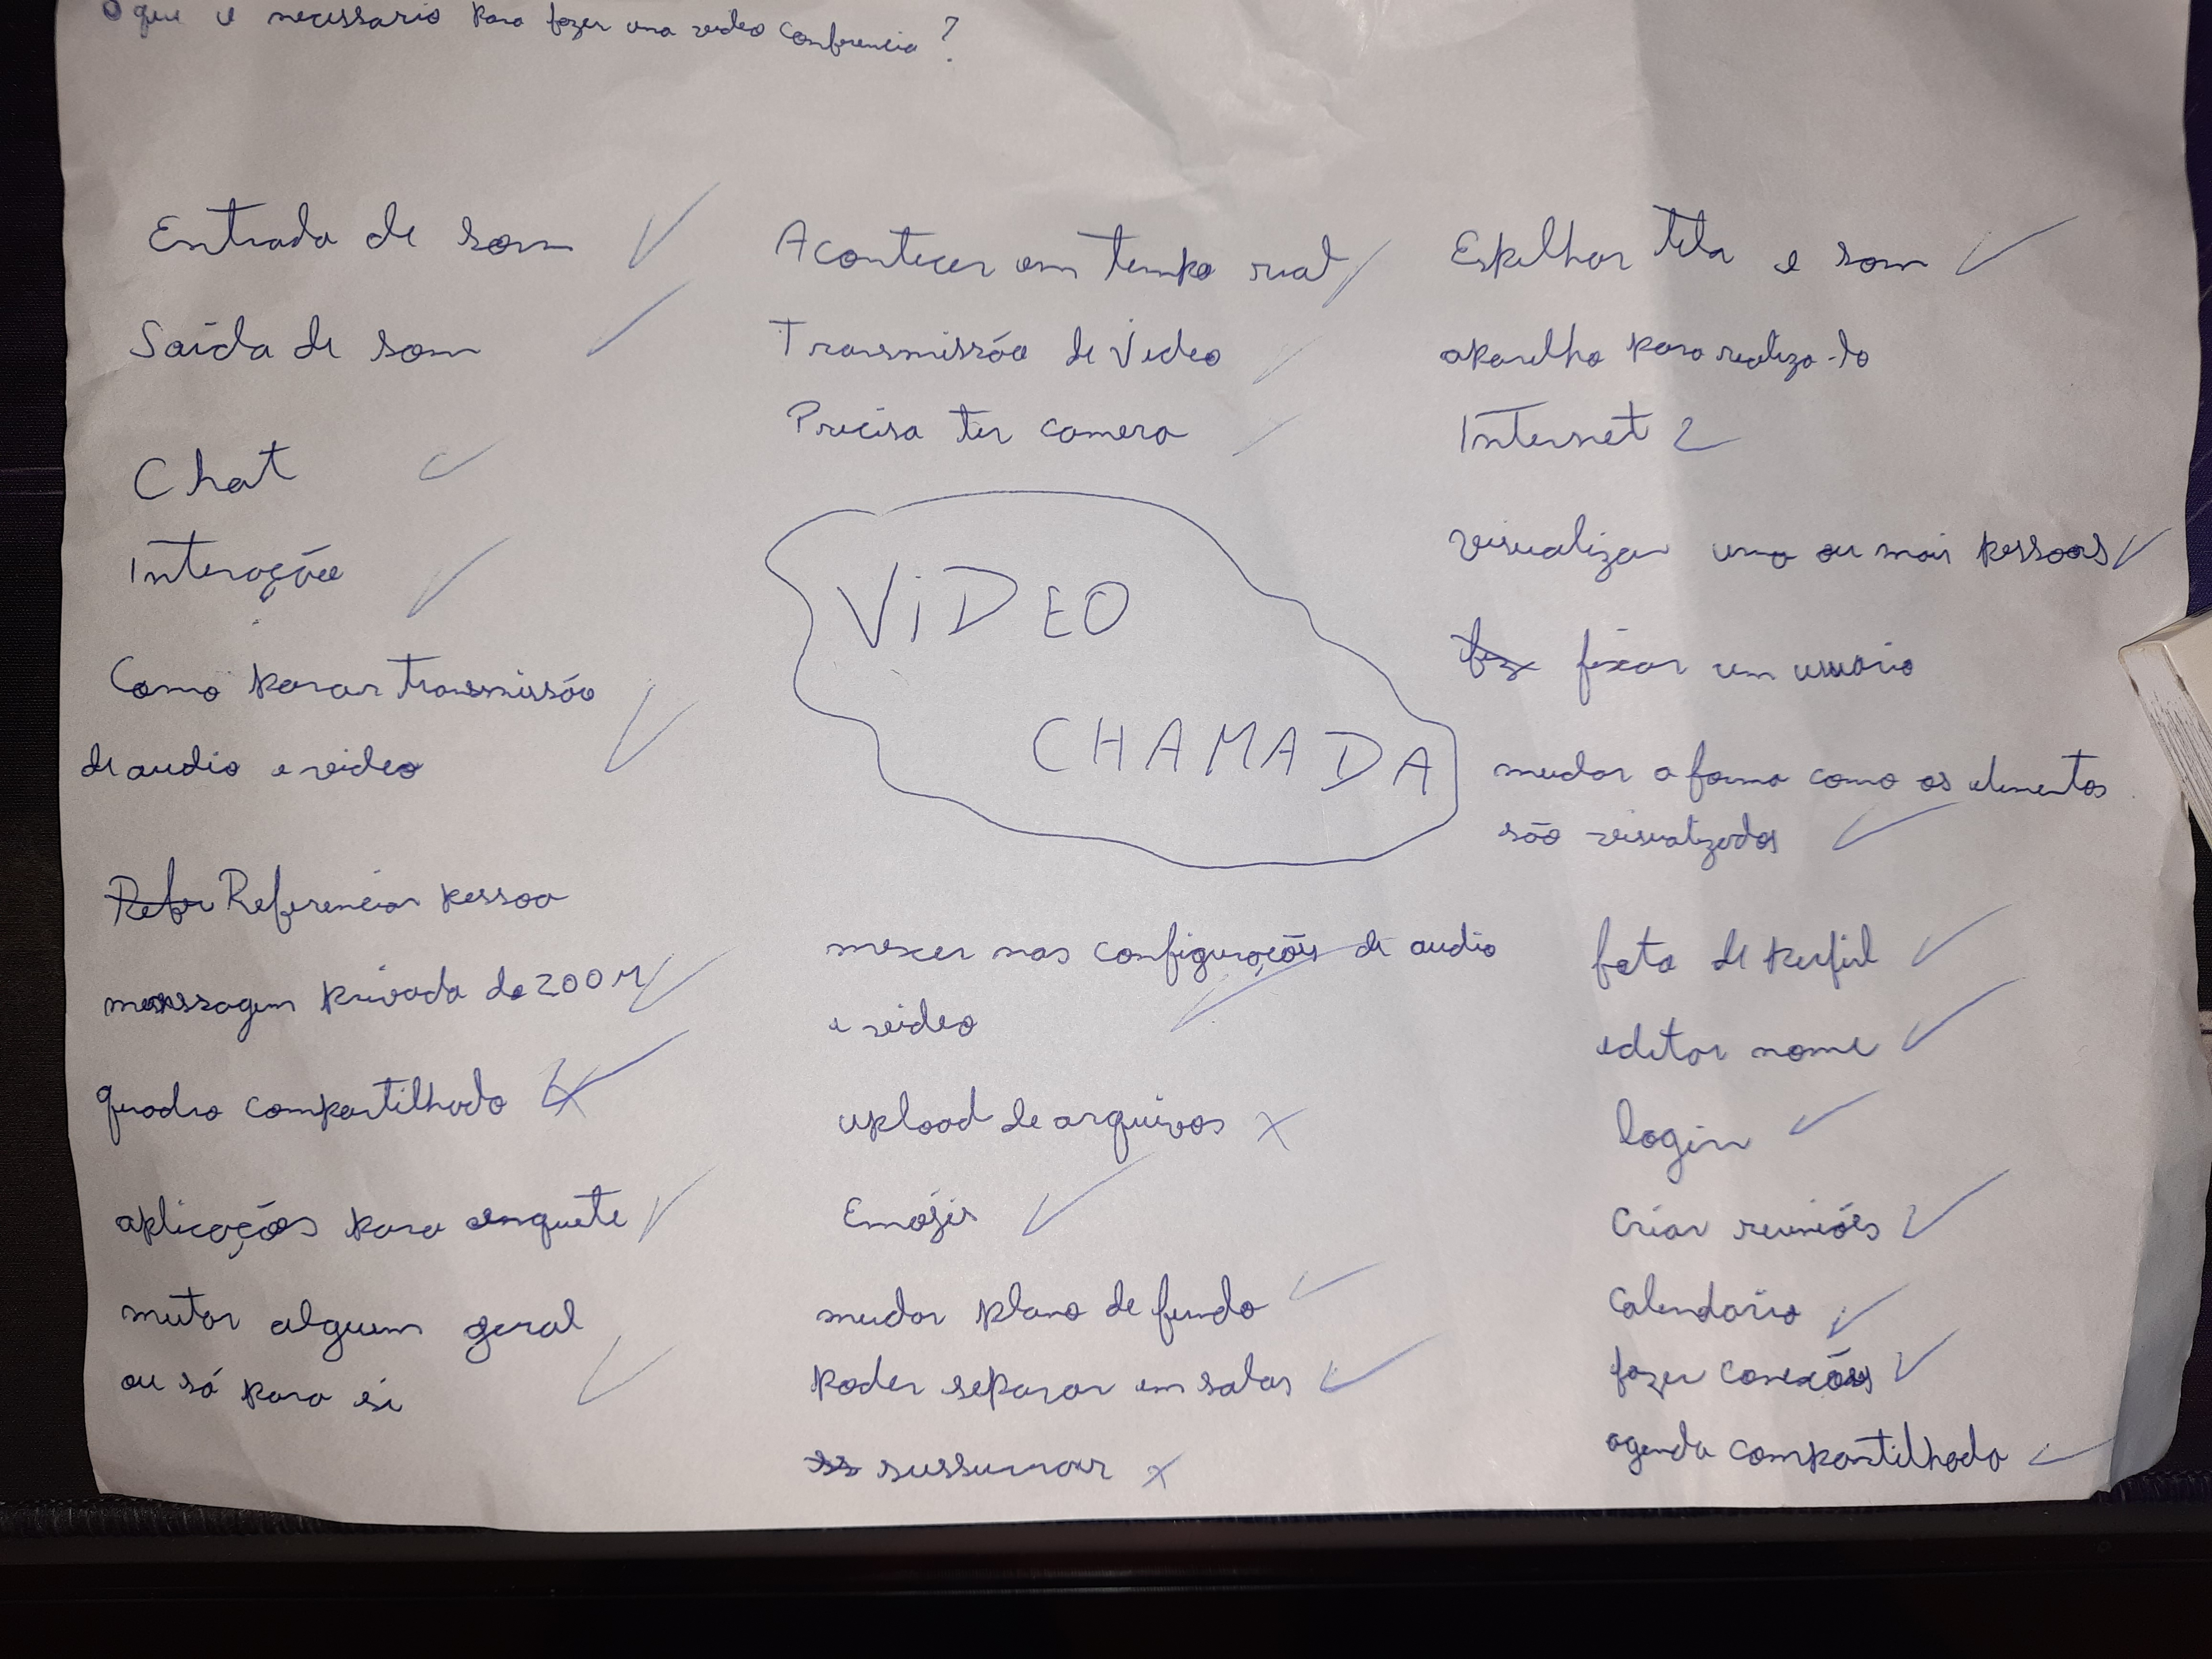 O que é necessario para fazer uma video conferencia?
Entrada de som
Saída de som
Chat
Interação
Como parar transmissão
de audio e video
Refer Referenciar pessoa
menssagem privada do ZOOM
quadro compartilhado
aplicações para enquete
mutar alguem geral
ou só para si
Acontecer em tempo real
Transmissão de Video
Precisa ter camera
VIDEO
CHAMADA
mexer nas configurações de audio
e video
upload de arquivos
Emójis
mudar plano de fundo
poder separar em salas
ss sussurrar
Espelhar tela e som
aparelho para realiza-lo
Internet
visualizar uma ou mais pessoas
fix fixar um usuário
mudar a forma como os elementos
são visualizados
foto de perfil
editar nome
login
Criar reuniões
Calendario
fazer conexões
agenda compartilhada